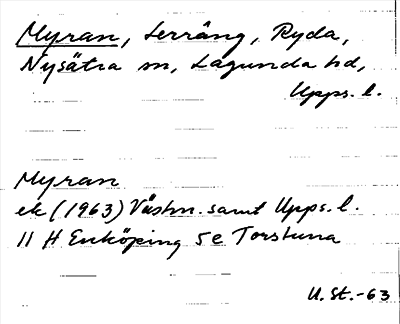 Myran, terräng, Ryda,
Nysätra sn, Lagunda hd,
Upps. l.
Myran
ek (1963) Västm. samt Upps. l.
11 H Enköping 5 e Torstuna
U. St. -63